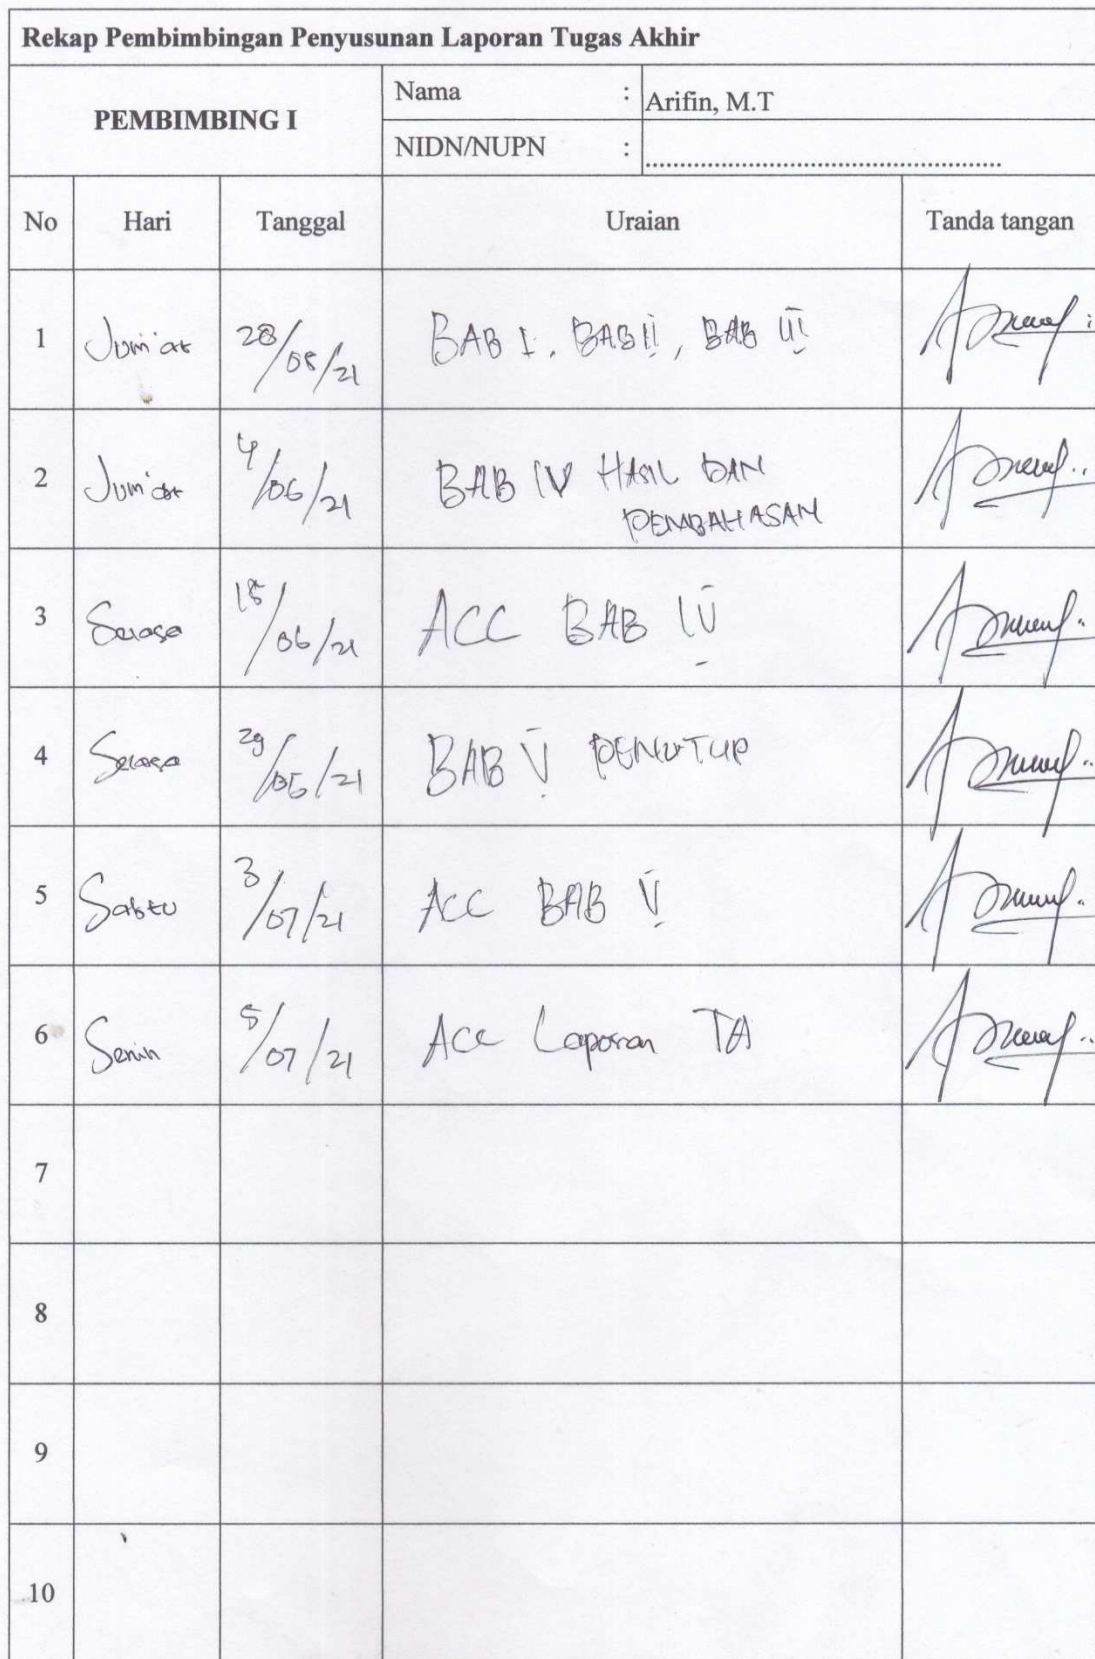 Rekap Pembimbingan Penyusunan Laporan Tugas Akhir
PEMBIMBING I
Nama : Arifin, M.T
NIDN/NUPN : ......................................................
No Hari Tanggal Uraian Tanda tangan
1 Jum'at 28/05/21 BAB I, BAB II, BAB III
2 Jum'at 4/06/21 BAB IV HASIL DAN
PEMBAHASAN
3 Selasa 15/06/21 ACC BAB IV
4 Selasa 29/06/21 BAB V PENUTUP
5 Sabtu 3/07/21 ACC BAB V
6 Senin 5/07/21 ACC Laporan TA
7
8
9
10